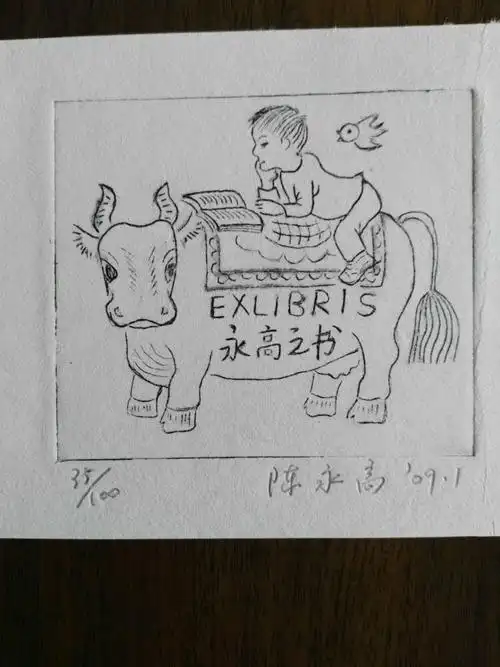 EXLIBRIS
永高之书
35/100 陈永高 '09.1